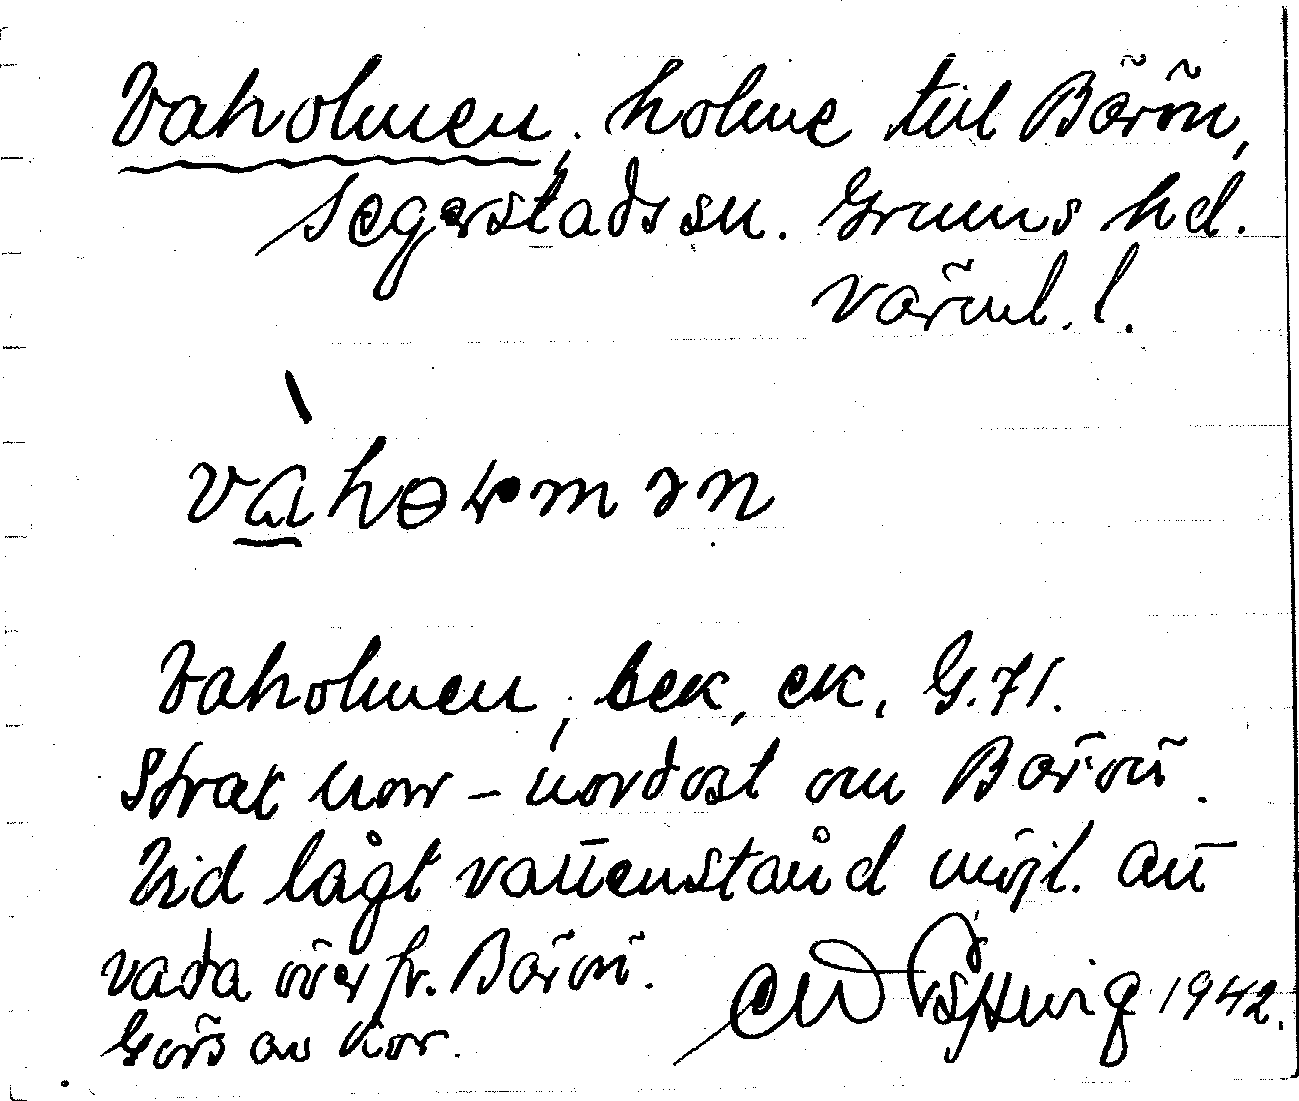 Vaholmen, holme till Bärön,
Segerstads sn. Grums hd.
Värml. l.
Vaholmen, bek, ek. G. 71.
Strax norr - nordost om Bärön.
Vid lågt vattenstånd möjl. att
vada över fr. Bärön.
Görs av kor.
1942.